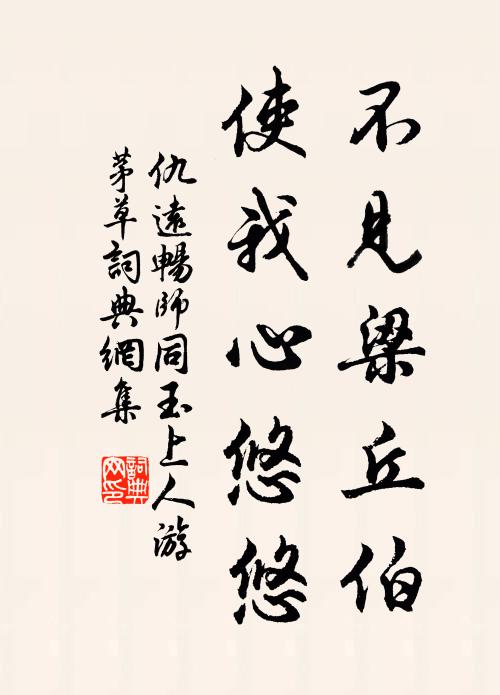 不見梁丘伯
使我心悠悠
仇遠暢師同玉上人游
茅草詞典網集
詞典網印